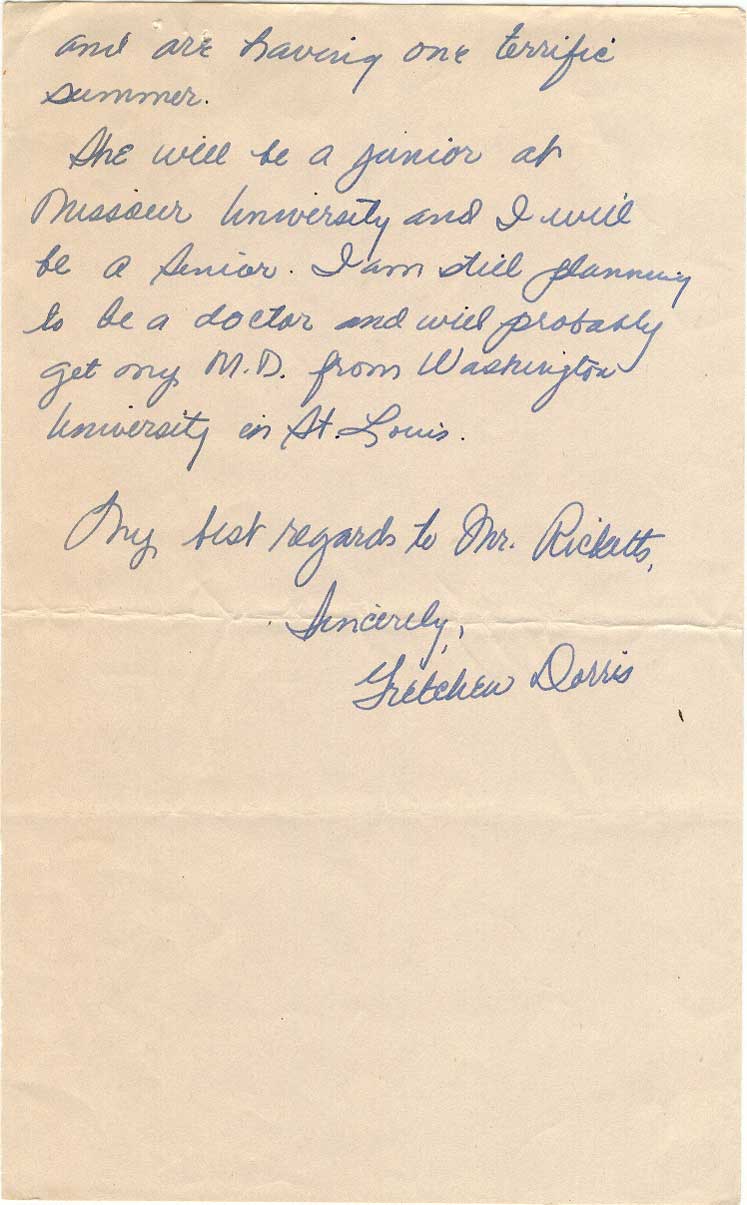 and are having one terrific
summer.
She will be a junior at
Missouri University and I will
be a Senior. I am still planning
to be a doctor and will probably
get my M.D. from Washington
University in St. Louis.
My best regards to Mr. Ricketts,
Sincerely,
Gretchen Dorris